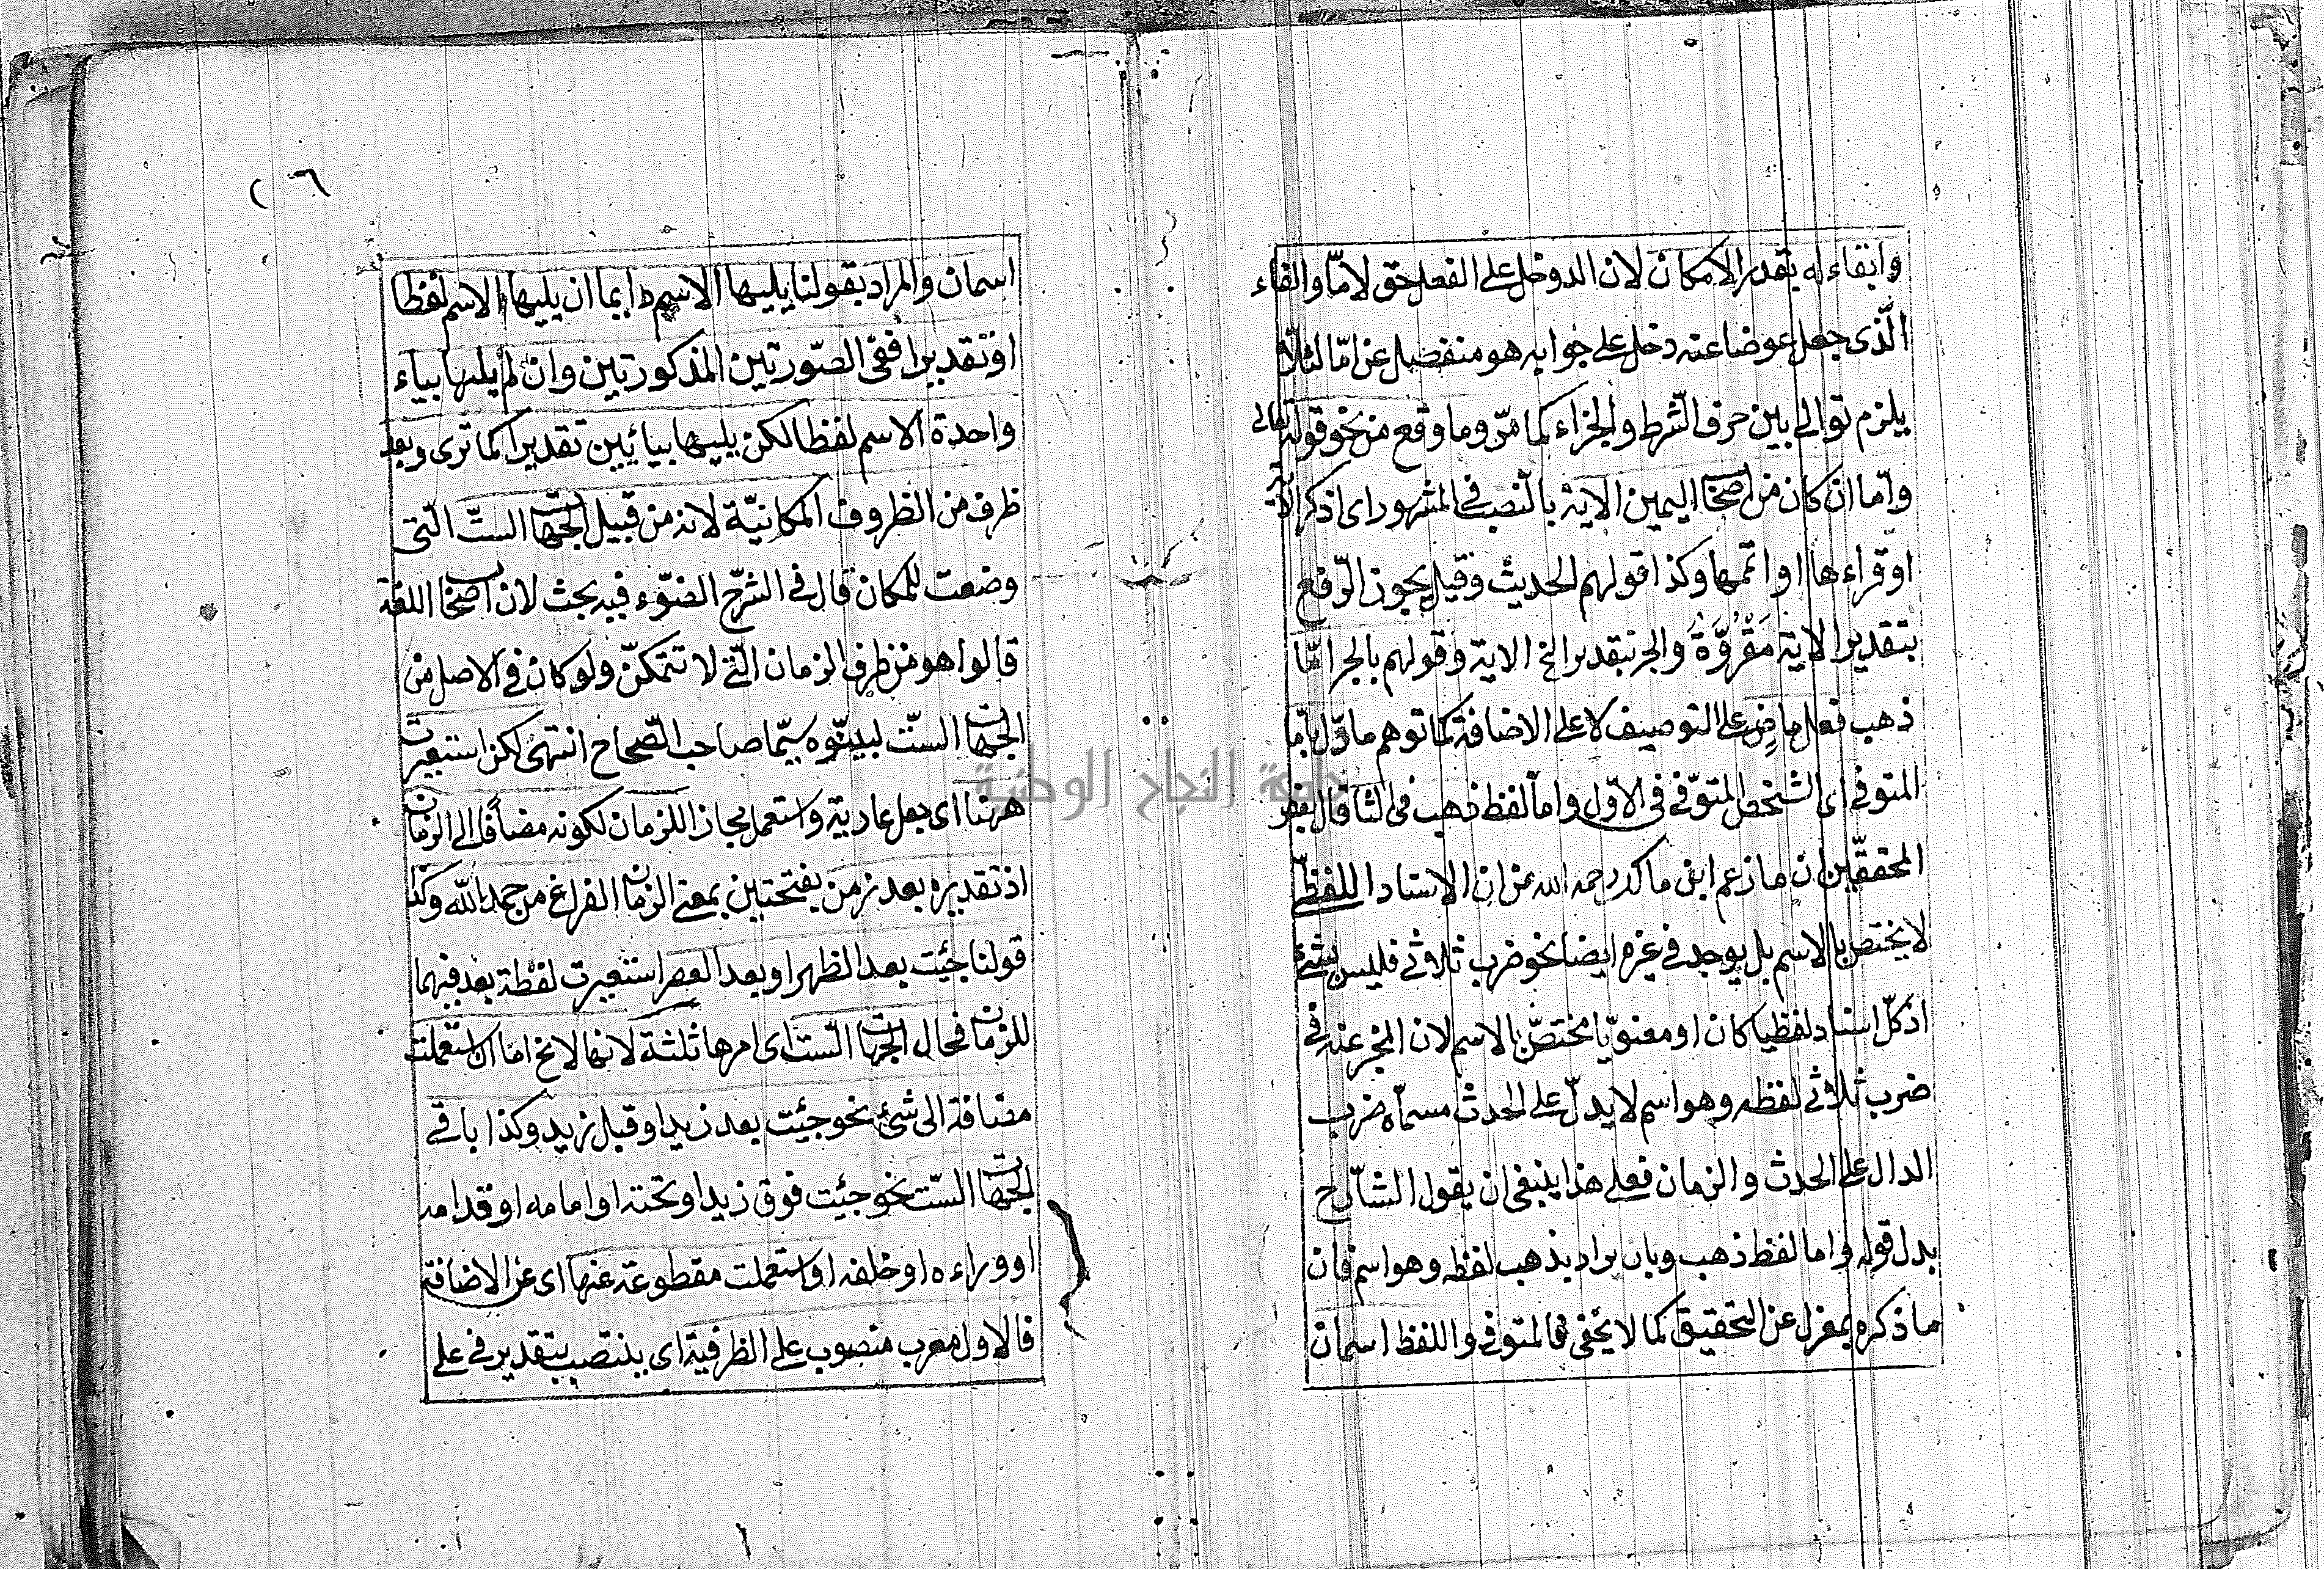 وابقاء له بقدر الامكان لان الدوخل على الفعل حق لامّا والفاء
الّذى جعل عوضا عنه دخل على جوابه هو منفصل عن امّا لئلا
يلزم توالى بين حرف الشرط والجزاء كما مرّ وما وقع من نحو قوله تعالى
وامّا ان كان من اصحاب اليمين الاية بالنصب فى المشهور اى اذكر الاية
او قراءها او اتمها وكذا قولهم الحديث وقيل يجوز الرّفع
بتقدير الاية مَقْرُوَّةٌ والجر بتقدير الخ الاية وقولهم بالجر امّا
ذهب فعل ماضٍ على التوصيف لا على الاضافة كما توهم ماوّل بامّا
المتوفى اى الشخص المتوفى فى الاوّل واما لفظ ذهب فى الثا قال بعض
المحققين ان ما زعم ابن ماكد رحمه الله من ان الاسناد اللفظىّ
لا يختص بالاسم بل يوجد فى غيره ايضا نحو ضرب ثلاثى فليس بشئ
اذ كلّ اسناد لفظيا كان او معنويّا مختصّ بالاسم لان المخبر عنه فى
ضرب ثلاثى لفظه وهو اسم لا يدلّ على الحدث مسمّاه ضرب
الدال على الحدث والزمان فعلى هذا ينبغى ان يقول الشّارح
بدل قوله واما لفظ ذهب وبان يراد بذهب لفظه وهو اسم فان
ما ذكره بمعزل عن التحقيق كما لا يخفى فالمتوفى واللفظ اسمان
٢٦
اسمان والمراد بقولنا يليها الاسم دايما ان يليها الاسم لفظا
او تقديرا ففى الصّورتين المذكورتين وان لم يليها بياء
واحدة الاسم لفظا لكن يليها بيائين تقديرا كما ترى وبعد
ظرف من الظروف المكانيّة لانه من قبيل الجهات الستّ الّتى
وضعت للمكان قال فى الشرح الضوّء فيه بحث لان اصحاب اللغة
قالوا هو من ظرف الزمان الّتى لا تتمكنّ ولو كان فى الاصل من
الجهات الستّ لبيّنوه سيّما صاحب الصّحاح انتهى لكن استعيرت
ههنا اى جعل عارية واستعمل مجازا للزمان لكونه مضافا الى الزمان
اذ تقديره بعد زمن بفتحتين بمعنى الزمان الفراغ من حمد الله وكذا
قولنا جئت بعد الظهر او بعد العصر استعيرت لفظة بعد فيهما
للزمان فحال الجهات الستّ اى امرها ثلثة لانها لا يخ اما ان استعملت
مضافة الى شئ نحو جئت بعد زيد او قبل زيد وكذا باقى
الجهات الستّ نحو جئت فوق زيد او تحته او امامه او قدامه
او وراءه او خلفه او استعملت مقطوعة عنها اى عن الاضافة
فالاول معرب منصوب على الظرفية اى ينتصب بتقدير فى على
جامعة النجاح الوطنية